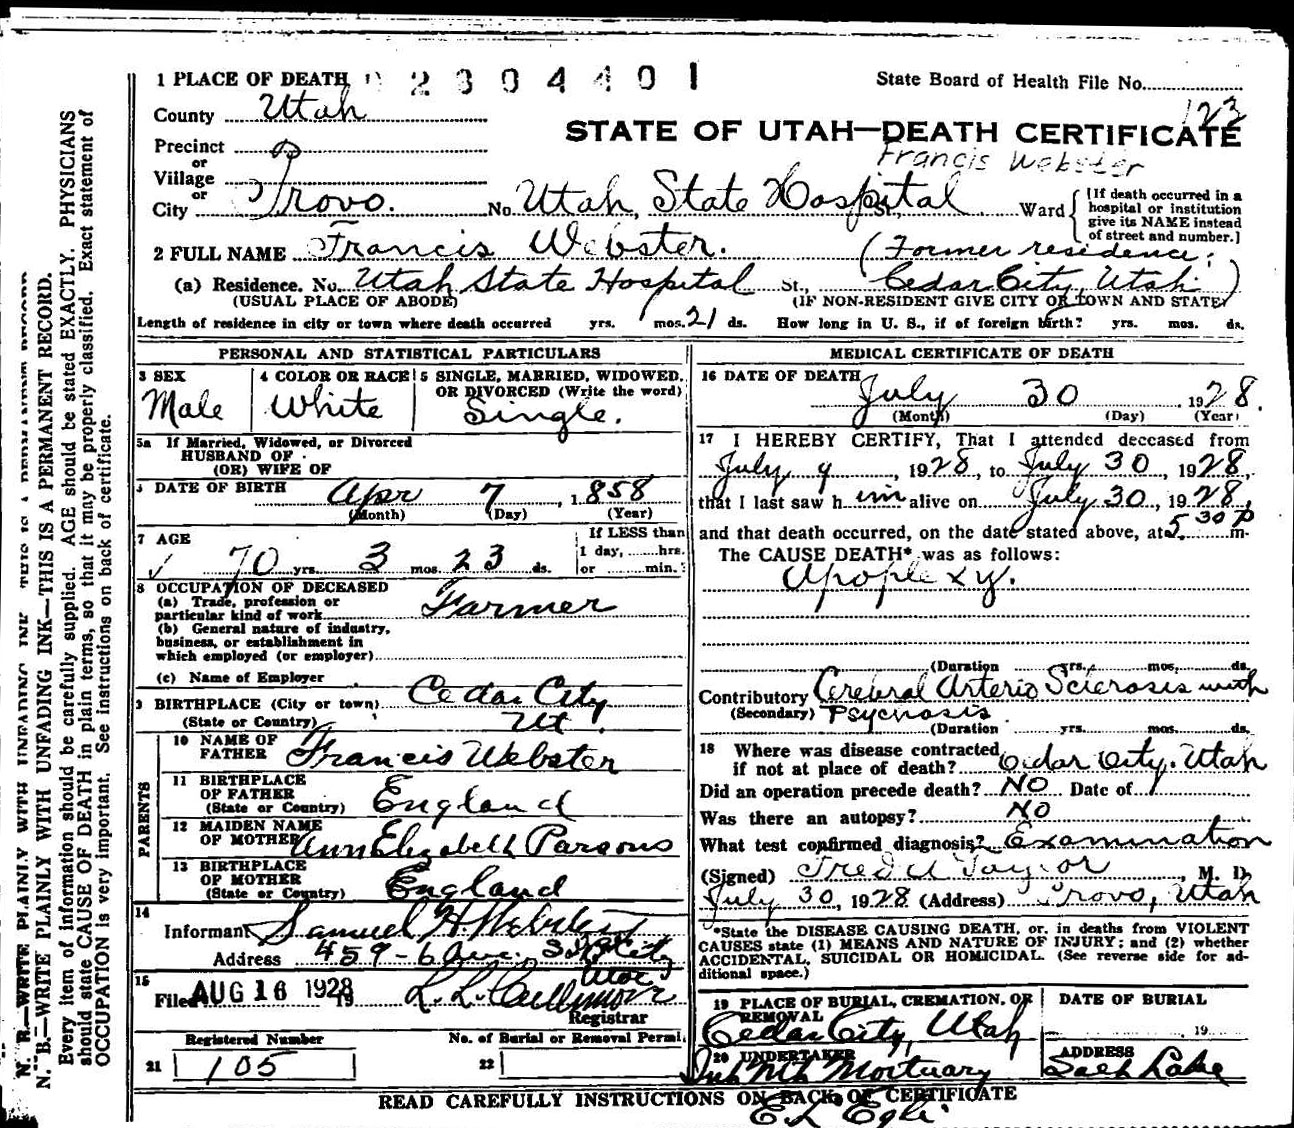 1 PLACE OF DEATH 2304401 State Board of Health File No.
County Utah 123
STATE OF UTAH—DEATH CERTIFICATE
Precinct P Francis Webster
or
Village
or
City Provo. No. Utah State Hospital St., Ward [If death occurred in a hospital or institution give its NAME instead of street and number.]
2 FULL NAME Francis Webster. (Former residence:
(a) Residence. No. Utah State Hospital St., Cedar City, Utah)
(USUAL PLACE OF ABODE) (IF NON-RESIDENT GIVE CITY OR TOWN AND STATE)
Length of residence in city or town where death occurred yrs. mos. 21 ds. How long in U. S., if of foreign birth? yrs. mos. ds.
PERSONAL AND STATISTICAL PARTICULARS
3 SEX 4 COLOR OR RACE 5 SINGLE, MARRIED, WIDOWED, OR DIVORCED (Write the word)
Male White Single.
5a If Married, Widowed, or Divorced
HUSBAND OF
(OR) WIFE OF
DATE OF BIRTH Apr 7, 1858
(Month) (Day) (Year)
7 AGE If LESS than
70 yrs. 3 mos. 23 ds. 1 day, hrs.
or min.
8 OCCUPATION OF DECEASED
(a) Trade, profession or
particular kind of work Farmer
(b) General nature of industry,
business, or establishment in
which employed (or employer)
(c) Name of Employer
9 BIRTHPLACE (City or town) Cedar City
(State or Country) Ut
PARENTS
10 NAME OF
FATHER Francis Webster
11 BIRTHPLACE
OF FATHER
(State or Country) England
12 MAIDEN NAME
OF MOTHER Ann Elizabeth Parsons
13 BIRTHPLACE
OF MOTHER
(State or Country) England
14
Informant Samuel H. Webster
Address 459-6 Ave,
15
Filed AUG 16 1928 19
Registrar
Registered Number No. of Burial or Removal Permit
21 105 22
MEDICAL CERTIFICATE OF DEATH
16 DATE OF DEATH July 30 1928.
(Month) (Day) (Year)
17 I HEREBY CERTIFY, That I attended deceased from
July 9, 1928, to July 30, 1928,
that I last saw him alive on July 30, 1928,
and that death occurred, on the date stated above, at 5 30 P m.
The CAUSE DEATH* was as follows:
Apoplexy.
(Duration yrs. mos. ds.
Contributory Cerebral Arterio Sclerosis with
(Secondary) Psychosis
(Duration yrs. mos. ds.
18 Where was disease contracted
if not at place of death? Cedar City, Utah
Did an operation precede death? NO Date of
Was there an autopsy? NO
What test confirmed diagnosis? Examination
(Signed) Fred W Taylor, M. D.
July 30, 1928 (Address) Provo, Utah
*State the DISEASE CAUSING DEATH, or, in deaths from VIOLENT
CAUSES state (1) MEANS AND NATURE OF INJURY; and (2) whether
ACCIDENTAL, SUICIDAL OR HOMICIDAL. (See reverse side for ad-
ditional space.)
19 PLACE OF BURIAL, CREMATION, OR REMOVAL DATE OF BURIAL
Cedar City, Utah 19
20 UNDERTAKER ADDRESS
Mortuary Salt Lake
READ CAREFULLY INSTRUCTIONS ON BACK OF CERTIFICATE
E. L. Egli
N. B.—WRITE PLAINLY WITH UNFADING INK—THIS IS A PERMANENT RECORD.
Every item of information should be carefully supplied. AGE should be stated EXACTLY. PHYSICIANS
should state CAUSE OF DEATH in plain terms, so that it may be properly classified. Exact statement of
OCCUPATION is very important. See instructions on back of certificate.